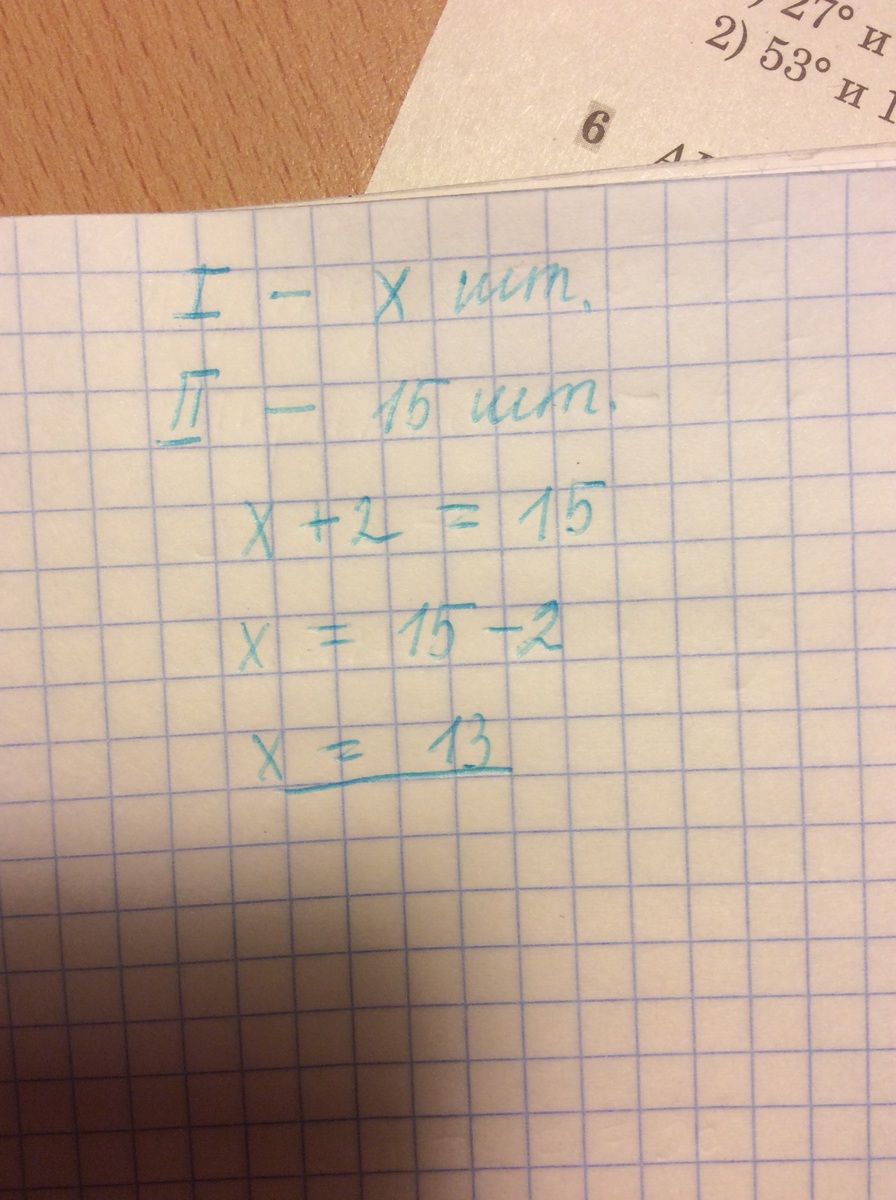 27° и
2) 53° и 1
6
I - x шт.
II - 15 шт.
x + 2 = 15
x = 15 - 2
x = 13